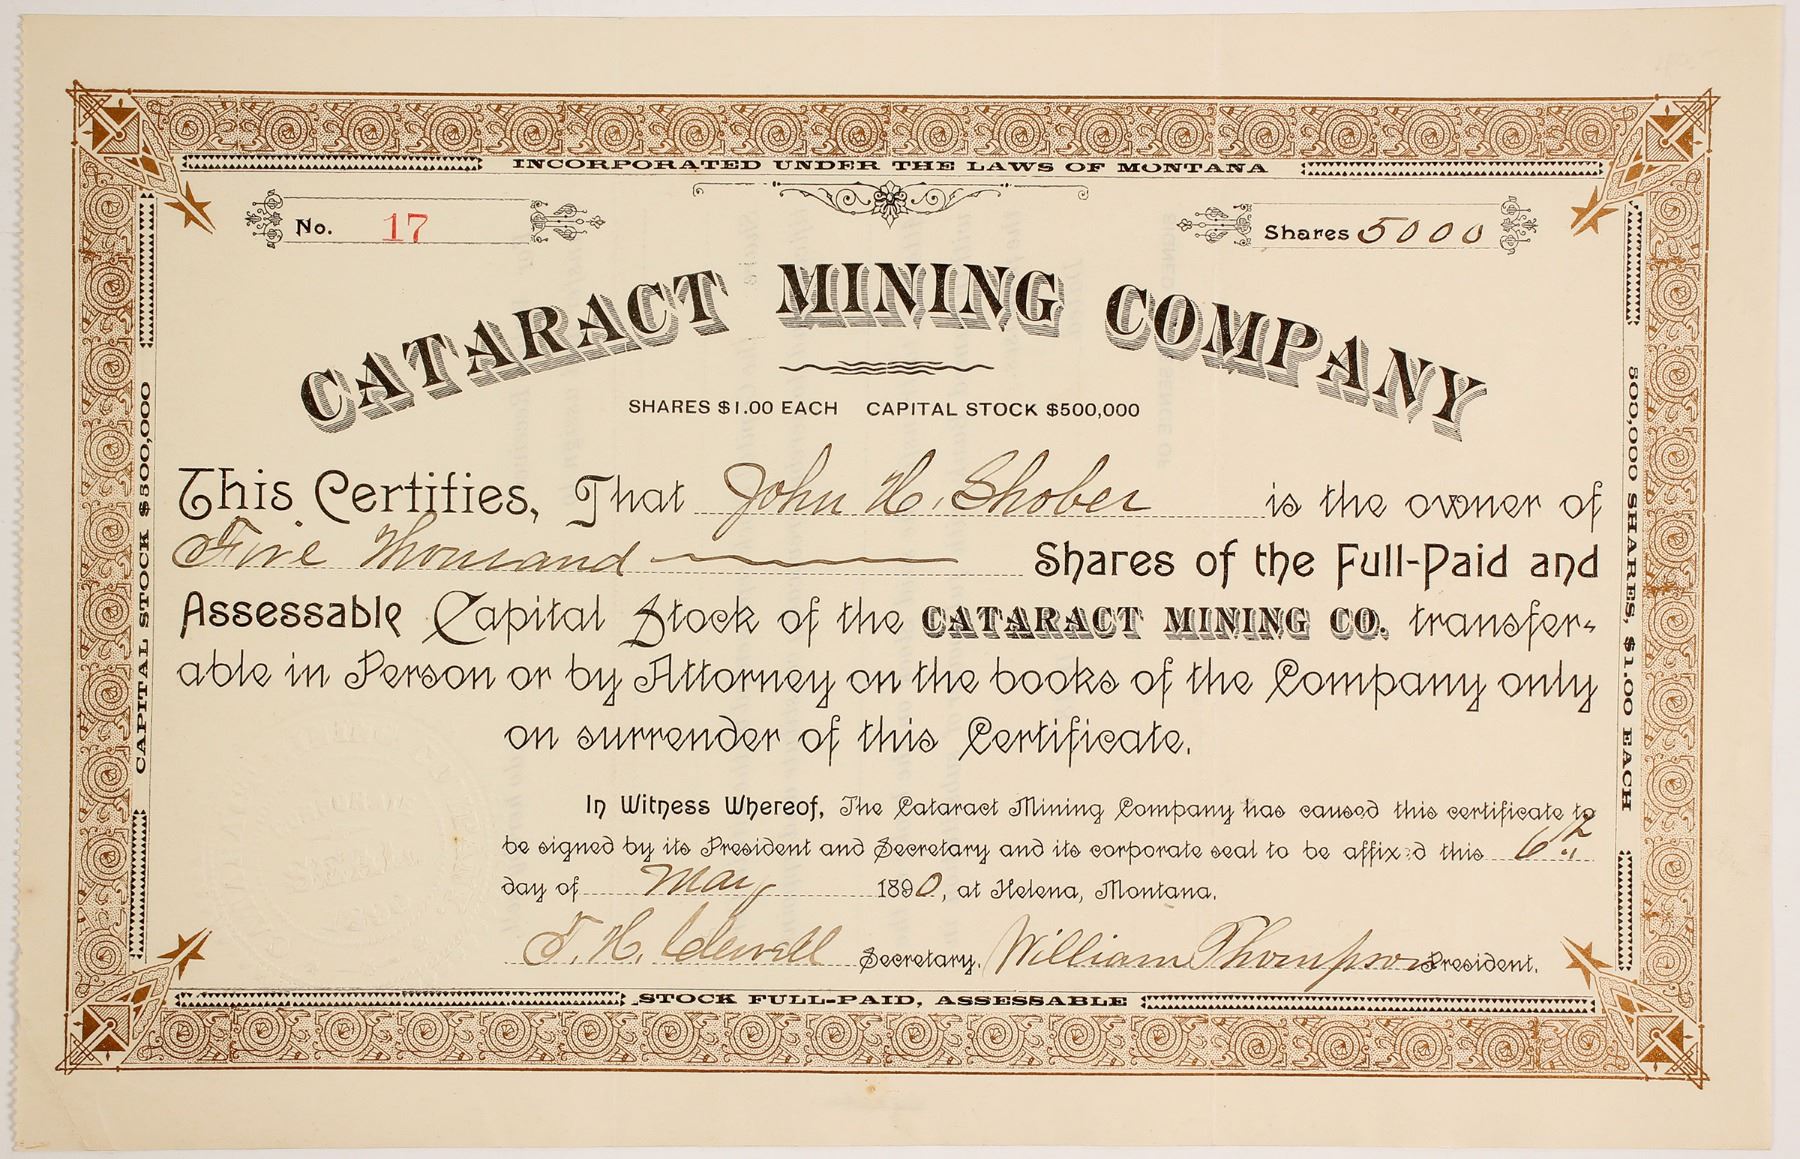 INCORPORATED UNDER THE LAWS OF MONTANA
No. 17
Shares 5000
CATARACT MINING COMPANY
SHARES $1.00 EACH CAPITAL STOCK $500,000
CAPITAL STOCK $500,000
500,000 SHARES, $1.00 EACH
This Certifies, That John H. Shober is the owner of
Five Thousand Shares of the Full-Paid and
Assessable Capital Stock of the CATARACT MINING CO. transfer-
able in Person or by Attorney on the books of the Company only
on surrender of this Certificate.
In Witness Whereof, The Cataract Mining Company has caused this certificate to
be signed by its President and Secretary and its corporate seal to be affixed this 6th
day of May 1890, at Helena, Montana.
T. H. Secretary. William Thompson President.
STOCK FULL-PAID, ASSESSABLE
SEAL